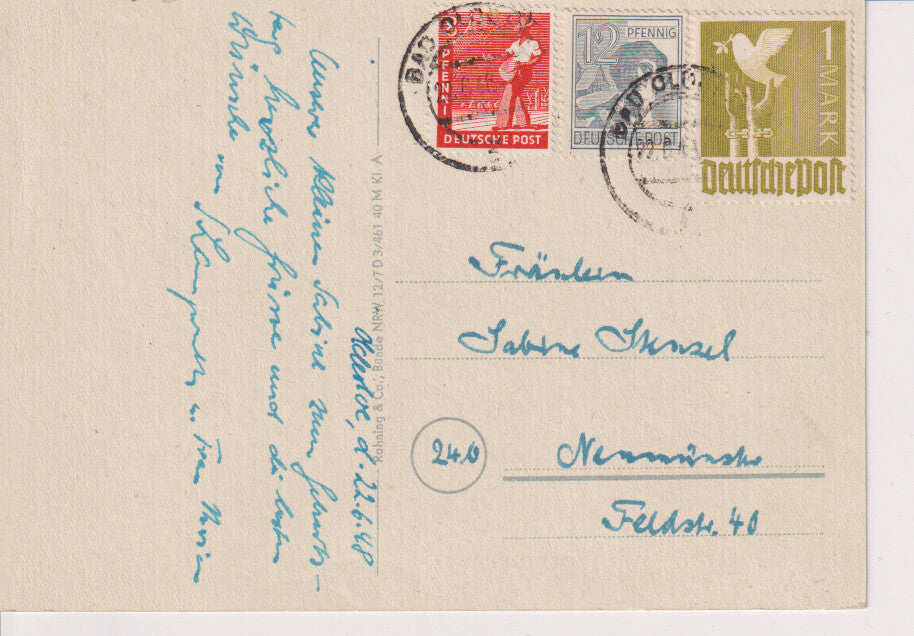 PFENNIG
DEUTSCHE POST
12 PFENNIG
DEUTSCHE POST
1 MARK
Deutsche Post
BAD OLD
BAD OLD
Oldesloe, d. 22.6.48
Unserer kleinen Sabine zum Geburts-
tag herzliche Grüsse und die besten
Wünsche von
u. Frau
Rahning & Co., Bünde NRW 12/7 D 3/461 40 M Kl. A
Fräulein
Sabine Stenzel
24b
Neumünster
Feldstr. 40